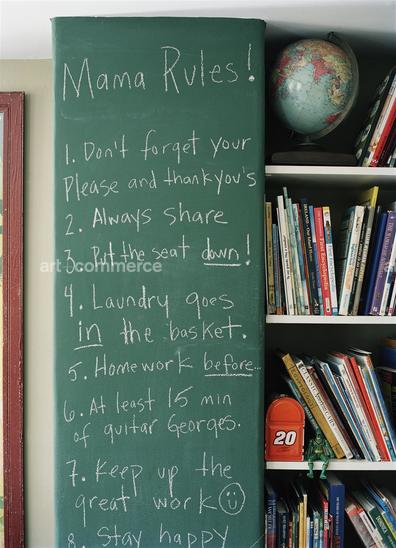 Mama Rules!
1. Don't forget your
Please and thankyou's
2. Always share
3. Put the seat down!
art+commerce
4. Laundry goes
in the basket.
5. Homework before...
6. At least 15 min
of guitar Georges.
7. Keep up the
great work
8. Stay happy
20